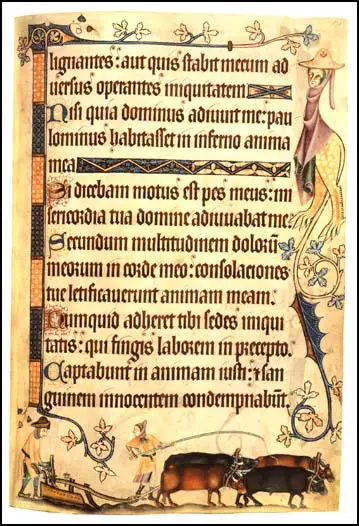 lignantes: aut quis stabit mecum ad
uersus operantes iniquitatem
Nisi quia dominus adiuuit me: pau
lominus habitasset in inferno anima
mea
Si dicebam motus est pes meus: mi
sericordia tua domine adiuuabat me.
Secundum multitudinem dolorū
meorum in corde meo: consolaciones
tue letificauerunt animam meam.
Numquid adheret tibi sedes iniqui
tatis: qui fingis laborem in precepto.
Captabunt in animam iusti: & san
guinem innocentem condempnabūt.